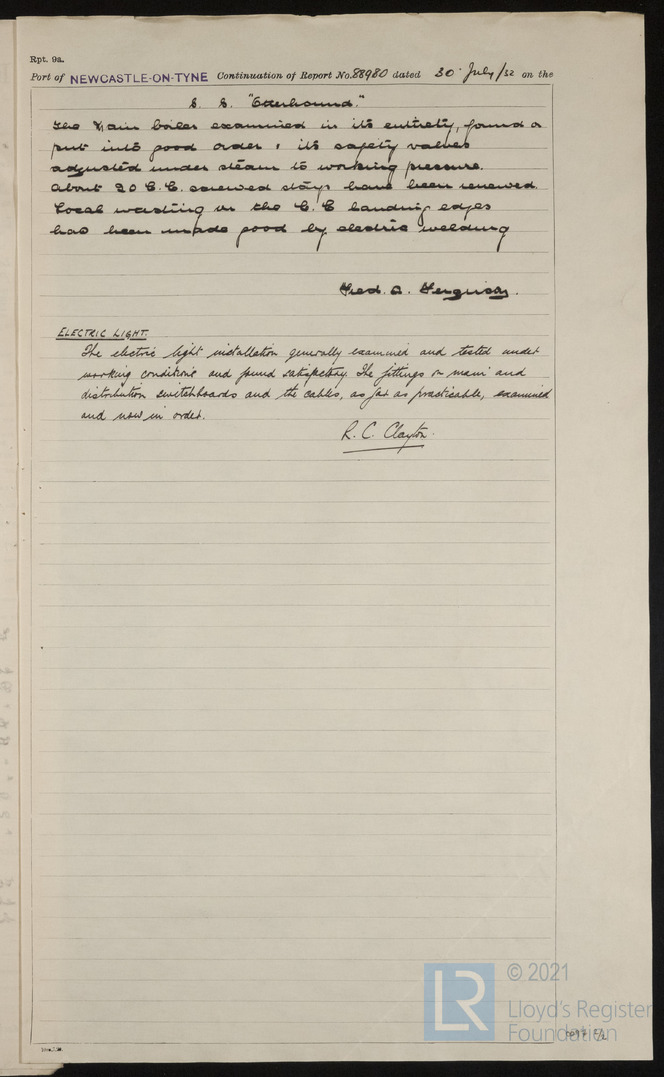 Rpt. 9a.
Port of NEWCASTLE-ON-TYNE Continuation of Report No. 88980 dated 30 July/32 on the
S. S. "Otterhound."
The Main boiler examined in its entirety, found or
put into good order & its safety valves
adjusted under steam to working pressure.
About 20 C.C. screwed stays have been renewed.
Local wasting in the C.C landing edges
has been made good by electric welding
Fred. A. Ferguson.
ELECTRIC LIGHT.
The electric light installation generally examined and tested under
working conditions and found satisfactory. The fittings on main and
distribution switchboards and the cables, as far as practicable, examined
and now in order.
R. C. Clayton.
© 2021
LR
Lloyd's Register
Foundation